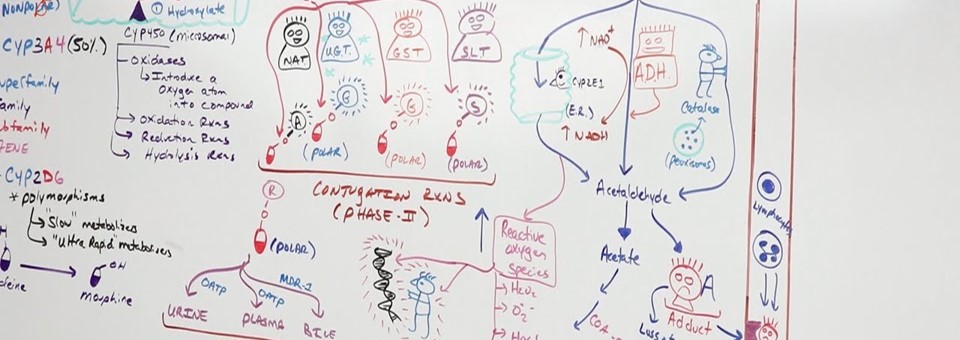 NONPOLAR)
① Hydroxylate
CYP3A4 (50%)
CYP450 (microsomal)
- Oxidases
↳ Introduce a
Oxygen atom
into compound
→ Oxidation Rxns
→ Reduction Rxns
→ Hydrolysis Rxns
uperfamily
amily
ubfamily
GENE
CYP2D6
* polymorphisms
→ "Slow" metabolizers
→ "Ultra Rapid" metabolizers
OH
morphine
NAT
UGT
GST
SLT
A
G
G
S
(POLAR)
(POLAR)
(POLAR)
CONJUGATION RXNS
(PHASE-II)
R
(POLAR)
OATP
OATP
MDR-1
URINE
PLASMA
BILE
↑ NAD+
CYP2E1
(E.R.)
↑ NADH
ADH
Catalase
(peroxisomes)
Acetaldehyde
Acetate
CoA
Reactive
oxygen
species
→ H2O2
→ O2-
Adduct
Lymphocytes